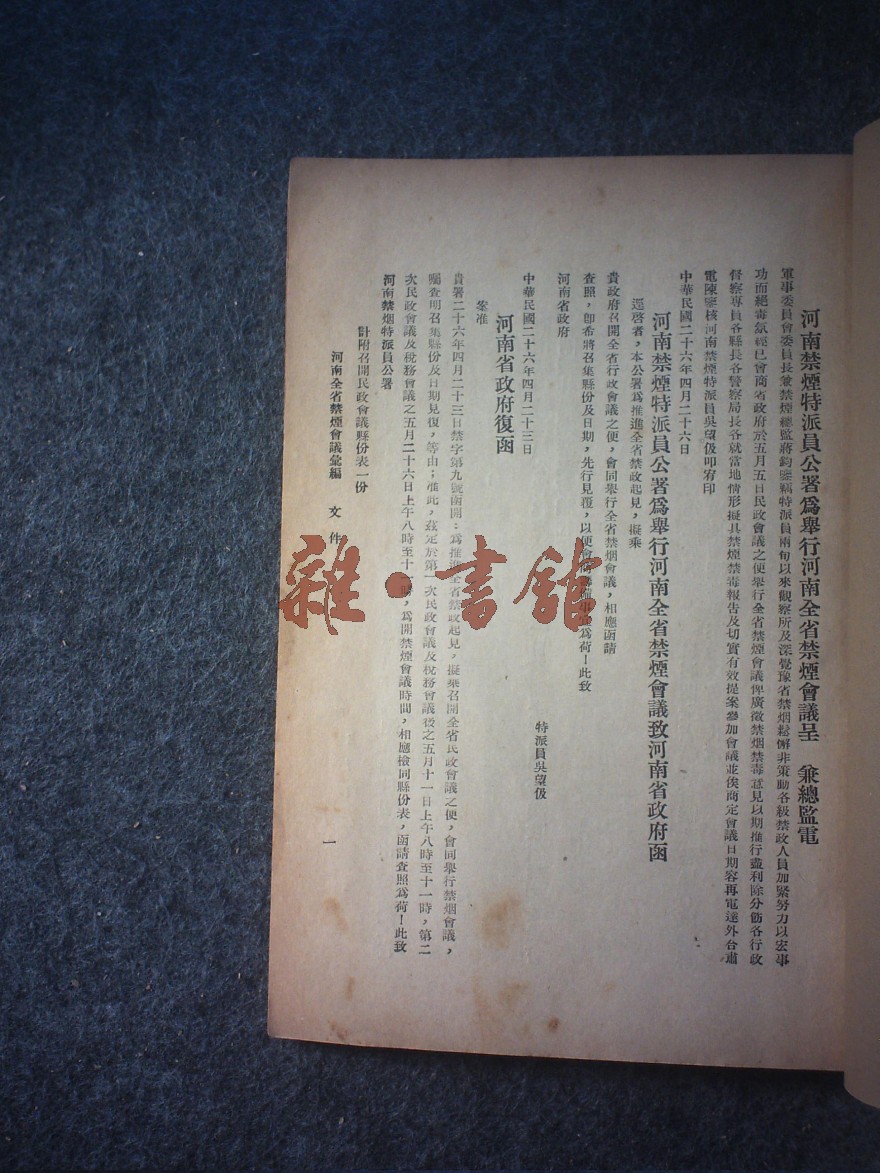 河南禁煙特派員公署爲舉行河南全省禁煙會議呈　兼總監電
軍事委員會委員長兼禁煙總監蔣鈞鑒竊特派員兩旬以來觀察所及深覺豫省禁烟鬆懈非策動各級禁政人員加緊努力以宏事
功而絕毒氛經已會商省政府於五月五日民政會議之便舉行全省禁煙會議俾廣徵禁烟禁毒意見以期推行盡利除分飭各行政
督察專員各縣長各警察局長各就當地情形擬具禁煙禁毒報告及切實有效提案參加會議並俟商定會議日期容再電達外合肅
電陳鑒核河南禁煙特派員吳望伋叩宥印
中華民國二十六年四月二十六日
河南禁煙特派員公署爲舉行河南全省禁煙會議致河南省政府函
逕啓者，本公署爲推進全省禁政起見，擬乘
貴政府召開全省行政會議之便，會同舉行全省禁烟會議，相應函請
查照，卽希將召集縣份及日期，先行見覆，以便會爲荷！此致
河南省政府
特派員吳望伋
中華民國二十六年四月二十三日
河南省政府復函
案准
貴署二十六年四月二十三日禁字第九號函開：爲推進全省禁政起見，擬乘召開全省民政會議之便，會同舉行禁烟會議，
囑查明召集縣份及日期見復，等由；准此，茲定於第一次民政會議及稅務會議後之五月十一日上午八時至十一時，第二
次民政會議及稅務會議之五月二十六日上午八時至十一時，爲開禁煙會議時間，相應檢同縣份表，函請查照爲荷！此致
河南禁烟特派員公署
計附召開民政會議縣份表一份
河南全省禁煙會議彙編　文件
一
雜·書館